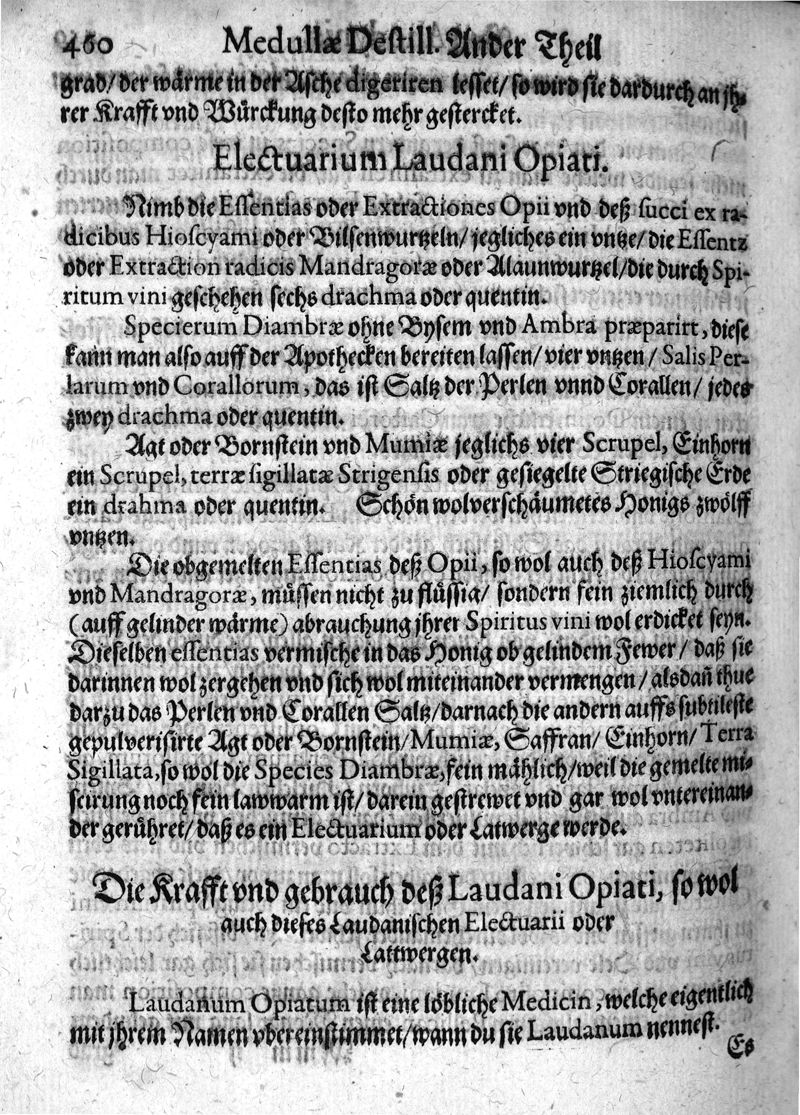 460 Medullæ Destill. Ander Theil
grad/ der wärme in der Asche digeriren lesset/ so wird sie dardurch an jh-
rer Krafft vnd Würckung desto mehr gestercket.
Electuarium Laudani Opiati.
Nimb die Essentias oder Extractiones Opii vnd deß succi ex ra-
dicibus Hioscyami oder Bilsenwurtzeln/ jegliches ein vntze/ die Essentz
oder Extraction radicis Mandragoræ oder Alaunwurtzel/ die durch Spi-
ritum vini geschehen sechs drachma oder quentin.
Specierum Diambræ ohne Bysem vnd Ambra præparirt, diese
kann man also auff der Apothecken bereiten lassen/ vier vntzen/ Salis Per-
larum vnd Corallorum, das ist Saltz der Perlen vnnd Corallen/ jedes
zwey drachma oder quentin.
Agt oder Bornstein vnd Mumiæ jeglichs vier Scrupel, Einhorn
ein Scrupel, terræ sigillatæ Strigensis oder gesiegelte Striegische Erde
ein drahma oder quentin. Schön wolverschäumetes Honigs zwölff
vntzen.
Die obgemelten Essentias deß Opii, so wol auch deß Hioscyami
vnd Mandragoræ, müssen nicht zu flüssig/ sondern fein ziemlich durch
(auff gelinder wärme) abrauchung jhrer Spiritus vini wol erdicket seyn.
Dieselben essentias vermische in das Honig ob gelindem Fewer/ daß sie
darinnen wol zergehen vnd sich wol miteinander vermengen/ alsdañ thue
darzu das Perlen vnd Corallen Saltz/ darnach die andern auffs subtileste
gepulverisirte Agt oder Bornstein/ Mumiæ, Saffran/ Einhorn/ Terra
Sigillata, so wol die Species Diambræ, fein mählich/ weil die gemelte mi-
scirung noch fein lawwarm ist/ darein gestrewet vnd gar wol vntereinan-
der gerühret/ daß es ein Electuarium oder Latwerge werde.
Die Krafft vnd gebrauch deß Laudani Opiati, so wol
auch dieses Laudanischen Electuarii oder
Lattwergen.
Laudanum Opiatum ist eine löbliche Medicin, welche eigentlich
mit jhrem Namen vbereinstimmet/ wann du sie Laudanum nennest.
Es